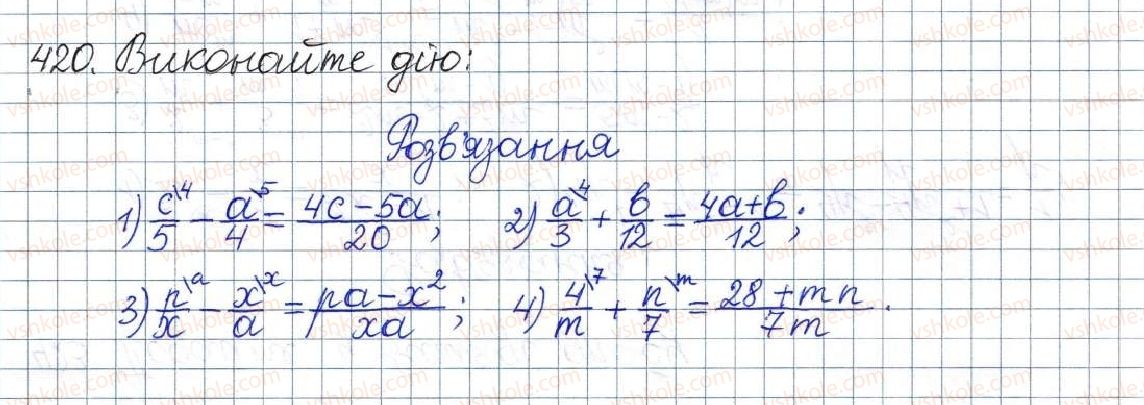 420. Виконайте дію:
Розв'язання
1) c\4/5 − a\5/4 = (4c − 5a)/20; 2) a\4/3 + b/12 = (4a + b)/12;
3) p\a/x − x\x/a = (pa − x²)/xa; 4) 4\7/m + n\m/7 = (28 + mn)/7m.